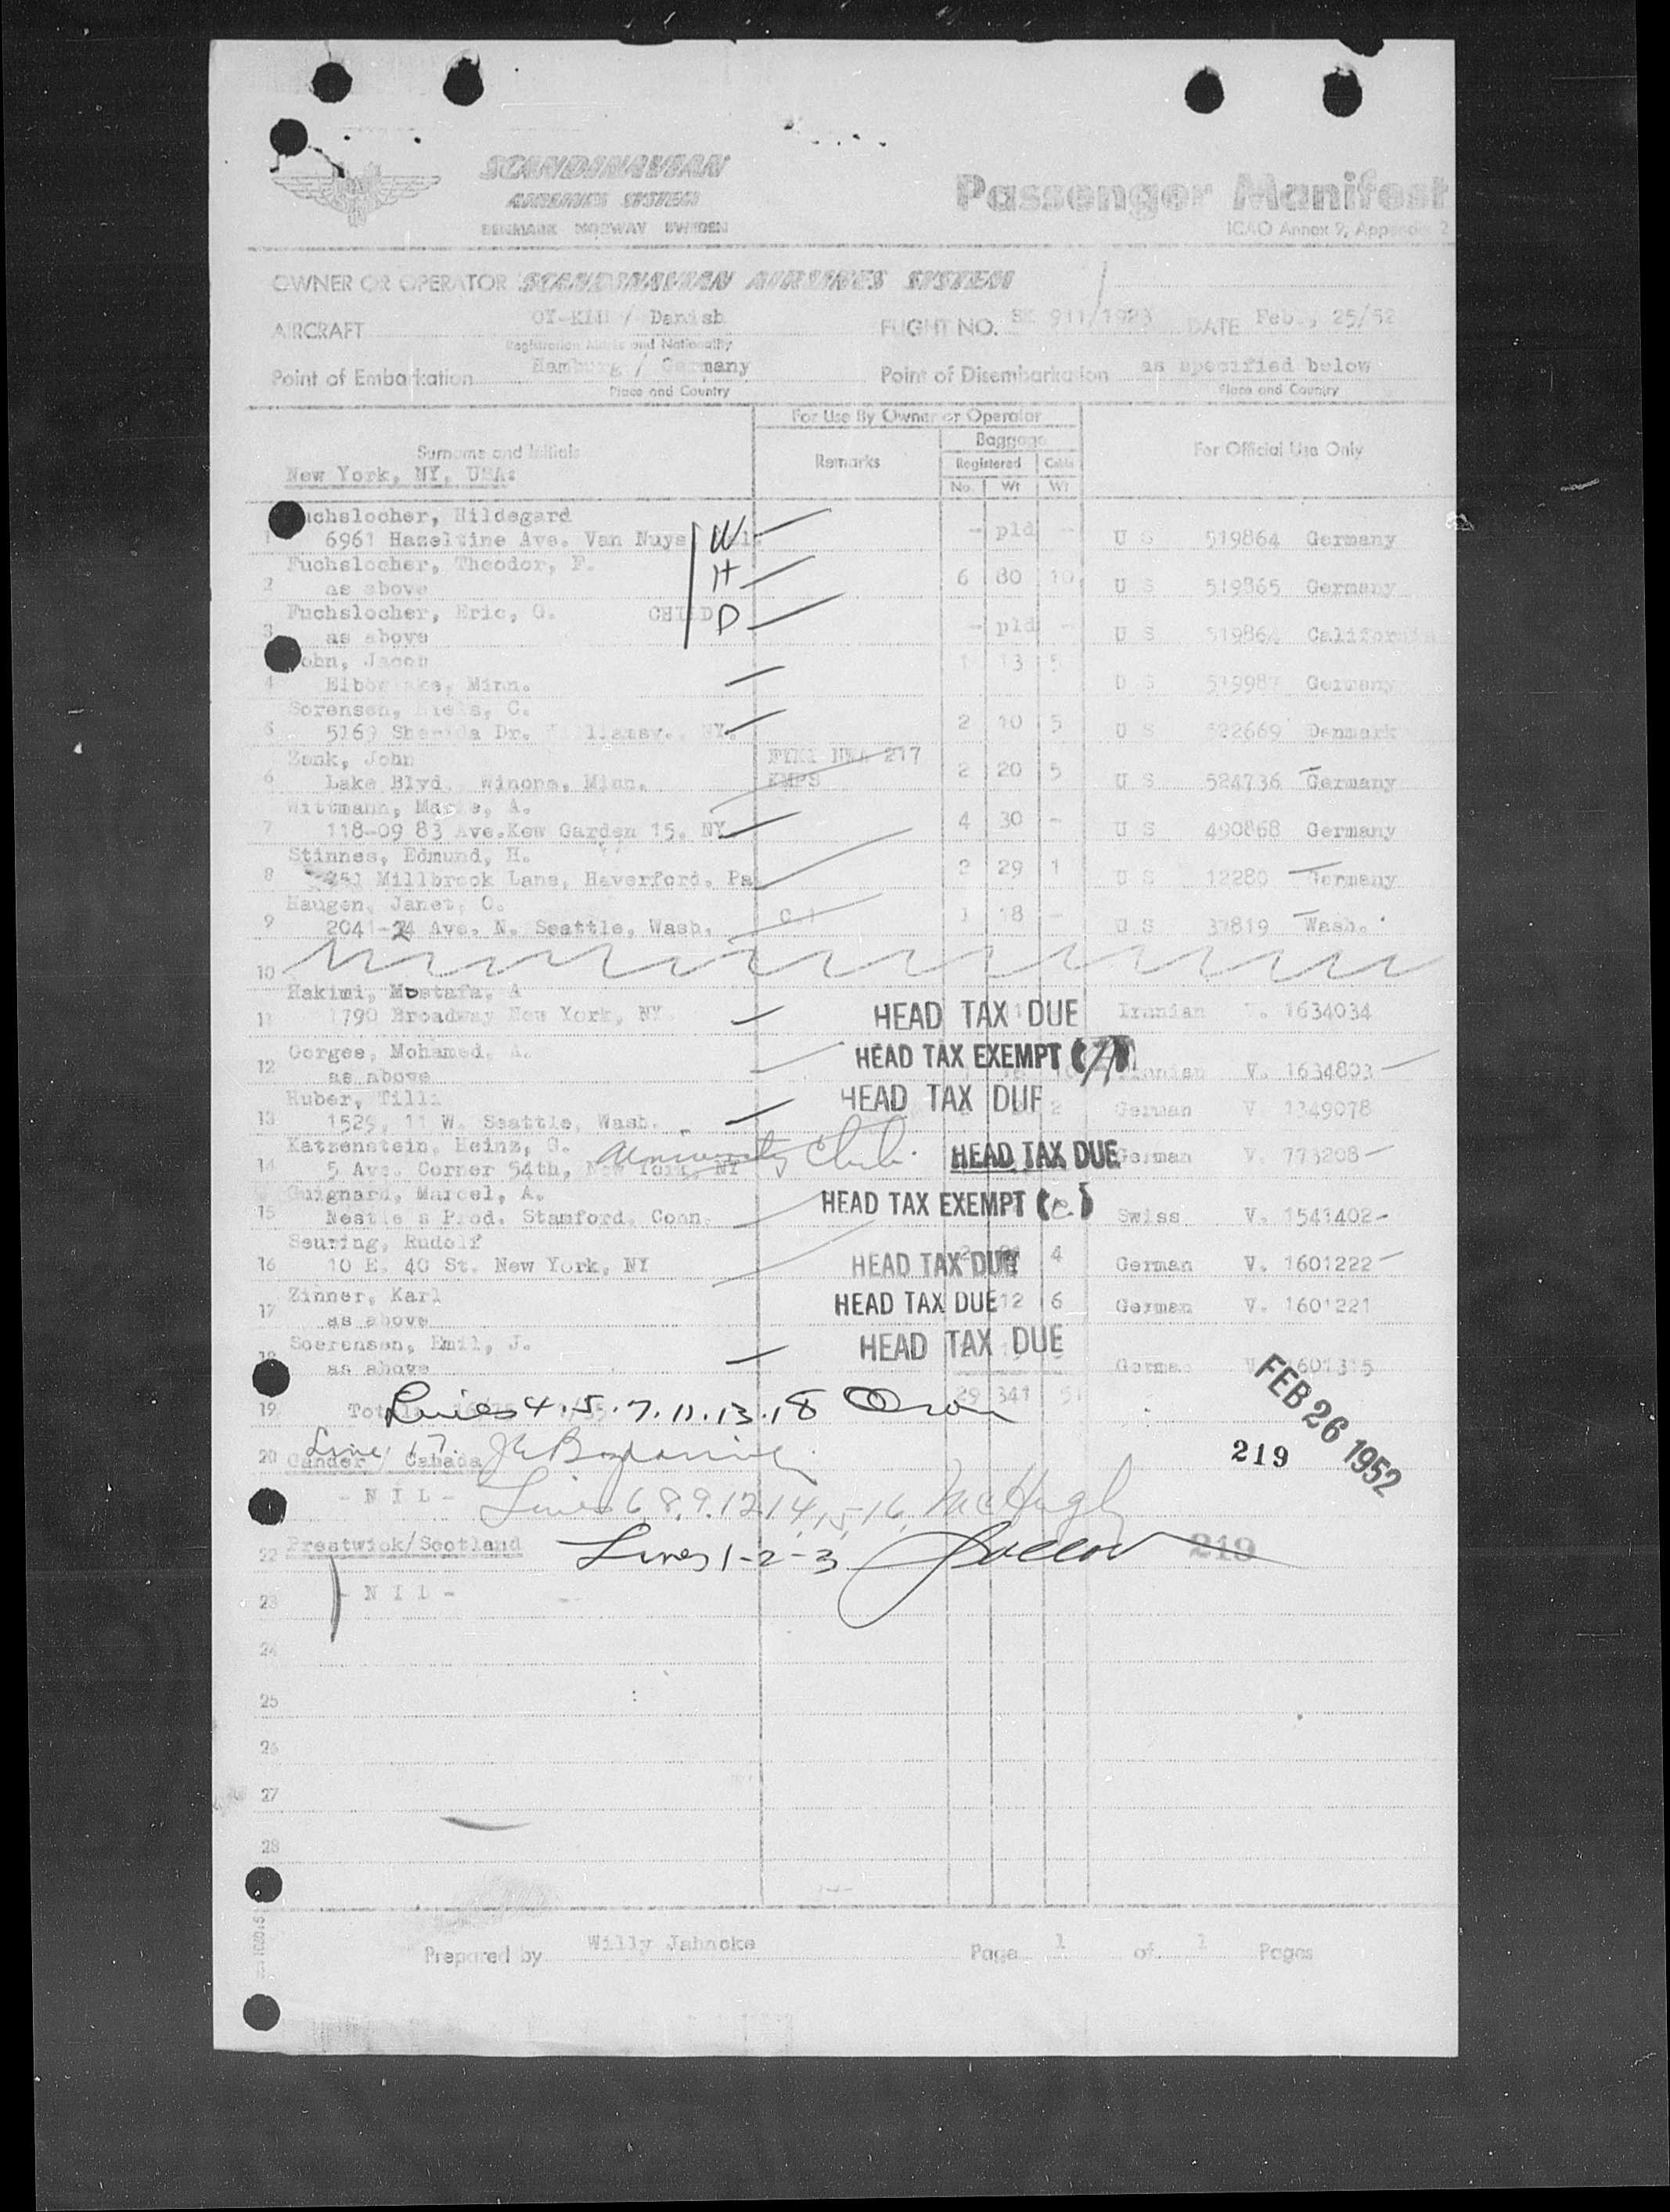 SCANDINAVIAN
AIRLINES SYSTEM
DENMARK NORWAY SWEDEN
Passenger Manifest
ICAO Annex 9, Appendix 2
OWNER OR OPERATOR SCANDINAVIAN AIRLINES SYSTEM
AIRCRAFT / Danish FLIGHT NO. SK 911/ DATE Feb., 25/52
Registration Marks and Nationality
Point of Embarkation Hamburg / Germany Point of Disembarkation as specified below
Place and Country Place and Country
For Use By Owner or Operator
Surname and Initials Remarks Baggage For Official Use Only
Registered Cabin
New York, NY, USA: No. Wt Wt
Fuchslocher, Hildegard
1 6961 Hazeltine Ave. Van Nuys W - pld - U S 519864 Germany
Fuchslocher, Theodor, F.
2 as above H 6 80 10 U S 519865 Germany
Fuchslocher, Eric, G. CHILD
3 as above D - pld - U S 519864 California
4 Minn. 1 13 5 Germany
Sorensen, C.
5 5169 Dr. NY. 2 10 5 U S Denmark
Zonk, John
6 Lake Blvd. Winona, Minn. 217 2 20 5 U S 524736 Germany
Wittmann, A.
7 118-09 83 Ave. Kew Garden 15, NY 4 30 - U S 490868 Germany
Stinnes, Edmund, H.
8 Millbrook Lane, Haverford, Pa 2 29 1 U S 12280 Germany
Haugen, Janet, O.
9 2041-24 Ave. N. Seattle, Wash. 1 18 - U S Wash.
10
Hakimi, Mostafa, A
11 1790 Broadway New York, NY. HEAD TAX DUE Iranian V. 1634034
Gorgee, Mohamed, A.
12 as above HEAD TAX EXEMPT Iranian V. 1634803
Huber, Tilla
13 1529, 11 W. Seattle, Wash. HEAD TAX DUE 2 German V. 1349078
Katzenstein, Heinz, G. University Club.
14 5 Ave. Corner 54th, New York, NY HEAD TAX DUE German V. 773208
Guignard, Marcel, A.
15 Nestle's Prod. Stamford, Conn. HEAD TAX EXEMPT (e) Swiss V. 1541402
Seuring, Rudolf
16 10 E. 40 St. New York, NY HEAD TAX DUE 4 German V. 1601222
Zinner, Karl
17 as above HEAD TAX DUE 12 6 German V. 1601221
Soerensen, Emil, J.
18 as above HEAD TAX DUE German V. 1601315
29 341
19 Total Lines 4.5.7.11.13.18
FEB 26 1952
Line 17.
20 Gander / Canada 219
- N I L - Lines 6,8,9,12,14,15-16, McHugh
22 Prestwick/Scotland Lines 1-2-3 219
23 - N I L -
24
25
26
27
28
Prepared by Willy Jahncke Page 1 of 1 Pages